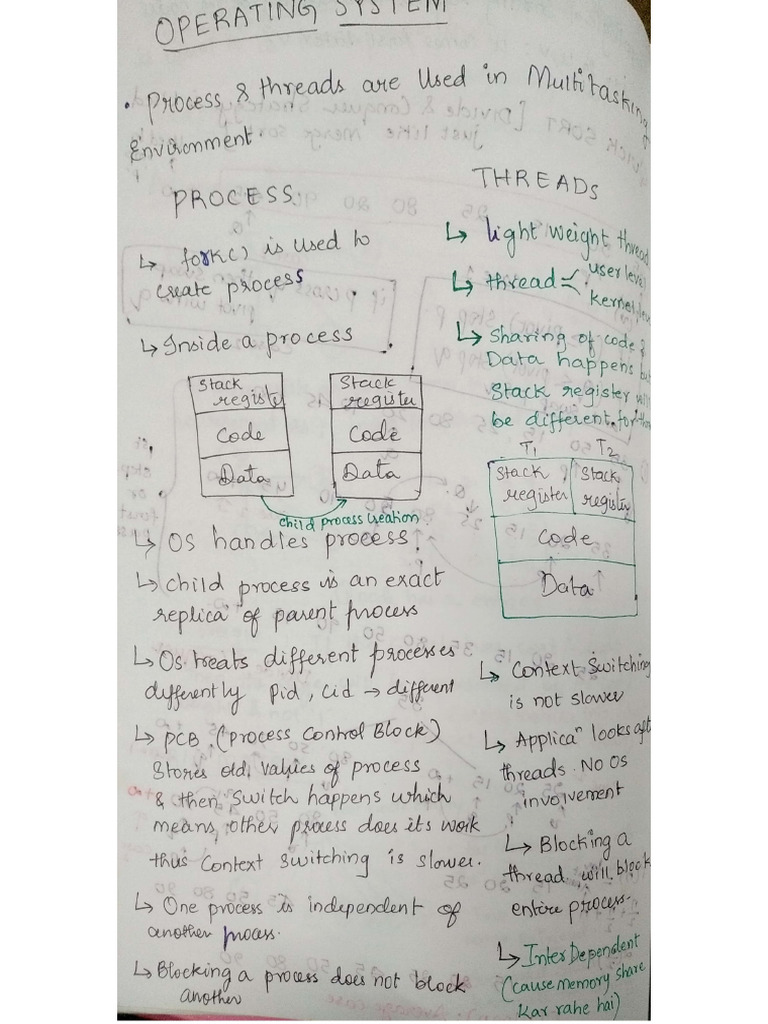 OPERATING SYSTEM
• Process & threads are Used in Multitasking
Environment.
PROCESS
↳ fork() is used to
create process
↳ Inside a process
Stack
register
Code
Data
Stack
register
Code
Data
Child process creation
↳ OS handles process.
↳ child process is an exact
replica of parent process
↳ Os treats different processes
differently Pid, Cid → different
↳ PCB (Process Control Block)
Stores old values of process
& then switch happens which
means, other process does its work
thus Context Switching is slower.
↳ One process is independent of
another process.
↳ Blocking a process does not block
another
THREADS
↳ light weight thread
↳ thread
user level
kernel level
↳ Sharing of code &
Data happens but
Stack register will
be different for
T1 T2
Stack
register
Stack
register
Code
Data
↳ Context Switching
is not slower
↳ Applicaⁿ looks aft
threads. No OS
involvement
↳ Blocking a
thread will block
entire process.
↳ InterDependent
(cause memory share
kar rahe hai)